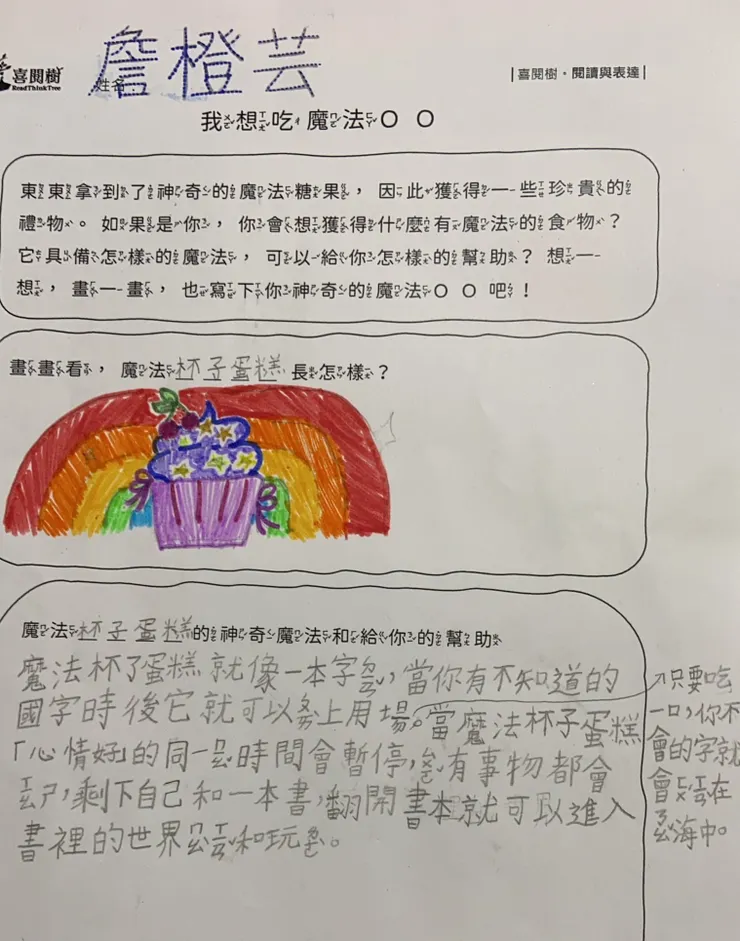 喜閱樹
ReadThinkTree
姓名
詹橙芸
|喜閱樹・閱讀與表達|
我想吃魔法〇〇
東東拿到了神奇的魔法糖果，因此獲得一些珍貴的
禮物。如果是你，你會想獲得什麼有魔法的食物？
它具備怎樣的魔法，可以給你怎樣的幫助？想一
想，畫一畫，也寫下你神奇的魔法〇〇吧！
畫畫看，魔法杯子蛋糕長怎樣？
魔法杯子蛋糕的神奇魔法和給你的幫助
魔法杯子蛋糕就像一本字ㄉㄧㄢˇ，當你有不知道的
國字時後它就可以ㄆㄞˋ上用場。當魔法杯子蛋糕
「心情好」的同一ㄕˊ時間會暫停，ㄙㄨㄛˇ有事物都會
ㄒㄧㄠ ㄕ，剩下自己和一本書，翻開書本就可以進入
書裡的世界ㄇㄠˋㄒㄧㄢˇ和玩ㄕㄨㄚˇ。
只要吃
一口，你不
會的字就
會ㄈㄨˊㄒㄧㄢˋ在
ㄋㄠˇ海中。